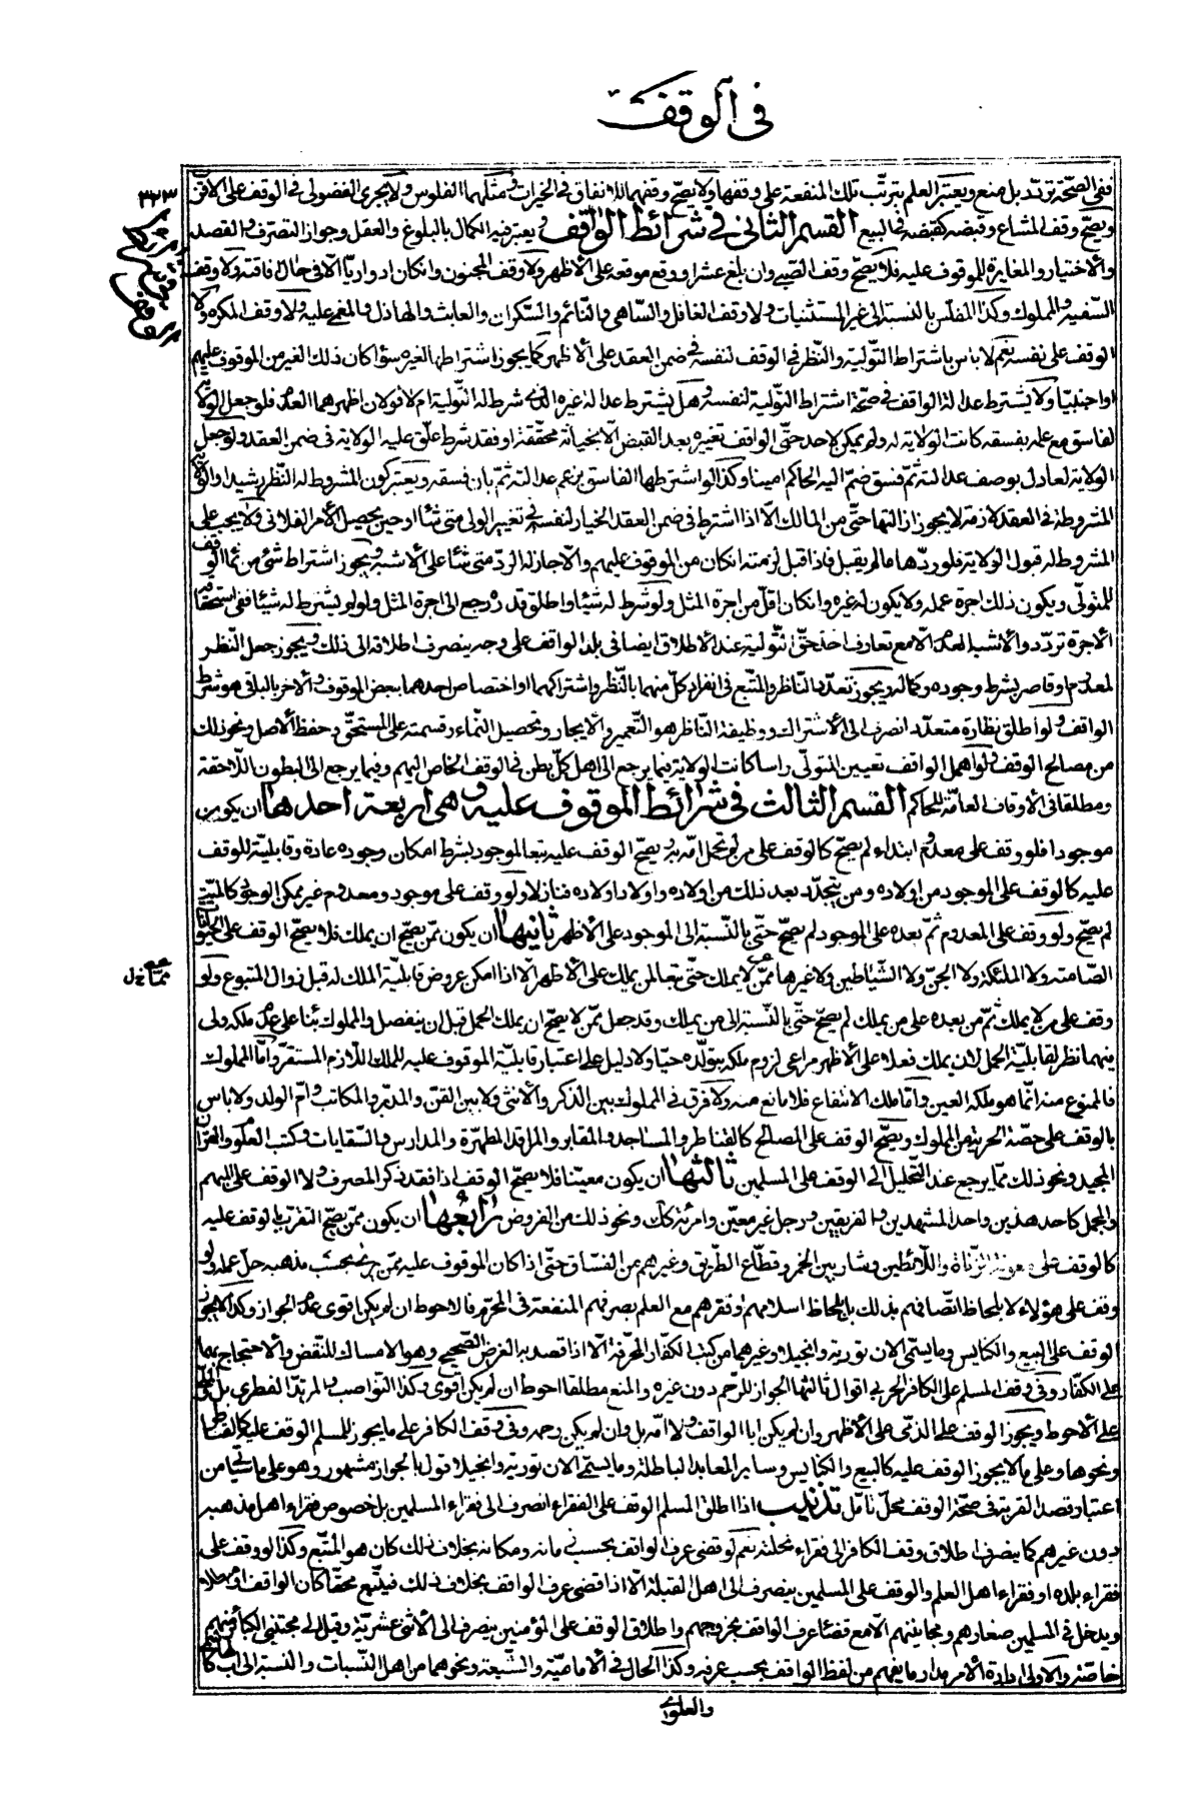 في الوقف
ففي الصحّة تردّد بل منع ويعتبر العلم بترتّب تلك المنفعة على وقفها ولا يصحّ وقفهما للانفاق في الخيرات ومثلهما الفلوس ولا يجرى الفضولى في الوقف على الاقوى
٣٢٣
ويصحّ وقف المشاع وقبضه كقبضه في البيع القسم الثاني في شرائط الواقف ويعتبر فيه الكمال بالبلوغ والعقل وجواز التصرف والقصد
والاختيار والمغايرة للموقوف عليه فلا يصحّ وقف الصبى وان بلغ عشرا ووقع موقعه على الاظهر ولا وقف المجنون وان كان ادواريّا الا في حال افاقته ولا وقف
السّفيه والمملوك وكذا المفلس بالنسبة الى غير المستثنيات ولا وقف الغافل والسّاهى والنّائم والسّكران والعابث والهاذل والمغمى عليه ولا وقف المكره ولا
الوقف على نفسه نعم لا باس باشتراط التّولية والنّظر في الوقف لنفسه في ضمن العقد على الاظهر كما يجوز اشتراطها لغيره سواء كان ذلك الغير من الموقوف عليهم
او اجنبيّا ولا يشترط عدالة الواقف في صحّة اشتراط التولية لنفسه وهل يشترط عدالة غيره الذى شرط له التّولية ام لا قولان اظهرهما العدم فلو جعل الولاية
لفاسق مع علمه بفسقه كانت الولاية له ولم يمكن لاحد حتّى الواقف تغييره بعد القبض الا بخيانة محقّقة او فقد شرط علّق عليه الولاية في ضمن العقد ولو جعل
الولاية لعادل بوصف عدالته ثمّ فسق ضمّ اليه الحاكم امينا وكذا لو اشترطها لفاسق بزعم عدالته ثمّ بان فسقه ويعتبر كون المشروط له النّظر رشيدا والولاية
المشروطة في العقد لازمة لا يجوز ازالتها حتّى من المالك الّا اذا اشترط في ضمن العقد الخيار لنفسه في تغيير الولى متى شاء او حين يحصل الأمر الفلانى ولا يجب على
المشروط له قبول الولاية فلو ردّها ما لم يقبل فاذا قبل لزمته ان كان من الموقوف عليهم والّا جاز له الردّ متى شاء على الاشبه ويجوز اشتراط شئ من نماء الوقف
للمتولّى ويكون ذلك اجرة عمله ولا يكون له غيره وان كان اقلّ من اجرة المثل ولو شرط له شيئا واطلق قدره رجع الى اجرة المثل ولو لم يشترط له شيئا ففى استحقاقه
الاجرة تردّد والاشبه العدم الّا مع تعارف اخذ حقّ التّولية عند الاطلاق ايضا في بلد الواقف على وجه ينصرف اطلاقه الى ذلك ويجوز جعل النّظر
لمعدوم او قاصر بشرط وجوده وكماله ويجوز تعدّد النّاظر والمتّبع في انفراد كلّ منهما بالنّظر واشتراكهما او اختصاص احدهما ببعض الوقوف والاخر بالباقى هو شرط
الواقف ولو اطلق نظارة متعدّد انصرف الى الاشتراك ووظيفة النّاظر هو التّعمير والايجار وتحصيل النّماء وقسمته على المستحقّ وحفظ الاصل ونحو ذلك
من مصالح الوقف ولو اهمل الواقف تعيين المتولّى راسا كانت الولاية فيما يرجع الى اهل كلّ بطن في الوقف الخاص اليهم وفيما يرجع الى البطون اللّاحقة
ومطلقا في الاوقاف العامّة للحاكم القسم الثالث في شرائط الموقوف عليه وهي اربعة احدها ان يكون
موجودا فلو وقف على معدوم ابتداء لم يصحّ كالوقف على من لم تحمل امّه به ويصحّ الوقف عليه تبعا لموجود بشرط امكان وجوده عادة وقابليّته للوقف
عليه كالوقف على الموجود من اولاده ومن يتجدّد بعد ذلك من اولاده واولاد اولاده فنازلا ولو وقف على موجود ومعدوم غير ممكن الوجود كالميّت
لم يصحّ ولو وقف على المعدوم ثمّ بعده على الموجود لم يصحّ حتّى بالنّسبة الى الموجود على الأظهر ثانيها ان يكون ممّن يصحّ ان يملك فلا يصحّ الوقف على الحيوانات
الصّامته ولا الملئكة ولا الجنّ ولا الشّياطين ولا غيرها ممّن لا يملك حتّى تبعا لمن يملك على الاظهر الا اذا امكن عروض قابليّة الملك له قبل زوال المتبوع ولو
وقف على من لا يملك ثمّ من بعده على من يملك لم يصحّ حتّى بالنّسبة الى من يملك وقد جعل ممّن لا يصحّ ان يملك الحمل قبل ان ينفصل والمملوك بناء على عدم ملكه ولى
فيهما نظر لقابليّة الحمل لان يملك فعلا على الاظهر مراعى لزوم ملكه بتولّده حيّا ولا دليل على اعتبار قابليّة الموقوف عليه للملك اللّازم المستقرّ وامّا المملوك
فالممنوع منه انّما هو ملكه العين وامّا ملك الانتفاع فلا مانع منه ولا فرق في المملوك بين الذكر والانثى ولا بين القنّ والمدبّر والمكاتب وامّ الولد ولا باس
بالوقف على حصّة الحرية من المملوك ويصحّ الوقف على المصالح كالقناطر والمساجد والمقابر والمراقد المطهّرة والمدارس والسّقايات وكتب العلم والقران
المجيد ونحو ذلك ممّا يرجع عند التّحليل الى الوقف على المسلمين ثالثها ان يكون معيّنا فلا يصحّ الوقف اذا فقد ذكر المصرف ولا الوقف على المبهم
والمجمل كاحد هذين واحد المشهدين والفريقين ورجل غير معيّن وامرئة كك ونحو ذلك من الفروض رابعها ان يكون ممّن يصحّ التقرّب بالوقف عليه
كالوقف على معونة الزّناة واللّائطين وشاربين الخمر وقطّاع الطّريق وغيرهم من الفسّاق حتّى اذا كان الموقوف عليه ممّن يرى بحسب مذهبه حلّ عمله ولو
وقف على هؤلاء لا بلحاظ اتّصافهم بذلك بل بلحاظ اسلامهم وفقرهم مع العلم بصرفهم المنفعة في المحرّم فالاحوط ان لم يكن اقوى عدم الجواز وكذا لا يجوز
الوقف على البيع والكنايس وما يسمّى الان تورية وانجيلا وغيرهما من كتب الكفّار المحرّفة الّا اذا قصد به الغرض الصّحيح وهو الامساك للنّقض والاحتجاج بهما
على الكفّار وفى وقف المسلم على الكافر الحربى اقوال ثالثها الجواز للرّحم دون غيره والمنع مطلقا احوط ان لم يكن اقوى وكذا النّواصب والمرتدّ الفطرى بل
على الاحوط ويجوز الوقف على الذمّى على الاظهر وان لم يكن ابا الواقف ولا امّه بل وان لم يكن رحمه وفى وقف الكافر على ما يجوز للمسلم الوقف عليه كالقناطر
ونحوها وعلى ما لا يجوز الوقف عليه كالبيع والكنايس وساير المعابد الباطلة وما يسمّى الان تورية وانجيلا قول بالجواز مشهور وهو على ما سيأتى من
اعتبار قصد القربة في صحّة الوقف محلّ تامّل تذنيب اذا اطلق المسلم الوقف على الفقراء انصرف الى فقراء المسلمين بل خصوص فقراء اهل مذهبه
دون غيرهم كما ينصرف اطلاق وقف الكافر الى فقراء نحلته نعم لو قضى عرف الواقف بحسب زمانه ومكانه بخلاف ذلك كان هو المتّبع وكذا لو وقف على
فقراء بلده او فقراء اهل العلم والوقف على المسلمين ينصرف الى اهل القبلة الّا اذا قضى عرف الواقف بخلاف ذلك فيتّبع محقّا كان الواقف او مبطلا
ويدخل في المسلمين صغارهم ومجانينهم الّا مع قضاء عرف الواقف بخروجهم واطلاق الوقف على المؤمنين ينصرف الى الاثنى عشريّة وقيل الى مجتنبى الكبائر منهم
خاصّة والاولى ادارة الأمر مدار ما يفهم من لفظ الواقف بحسب عرفه وكذا الحال في الاماميّة والشّيعة ونحوهما من اهل النّسبات والنّسبة الى اب كالهاشمى
والعلوى